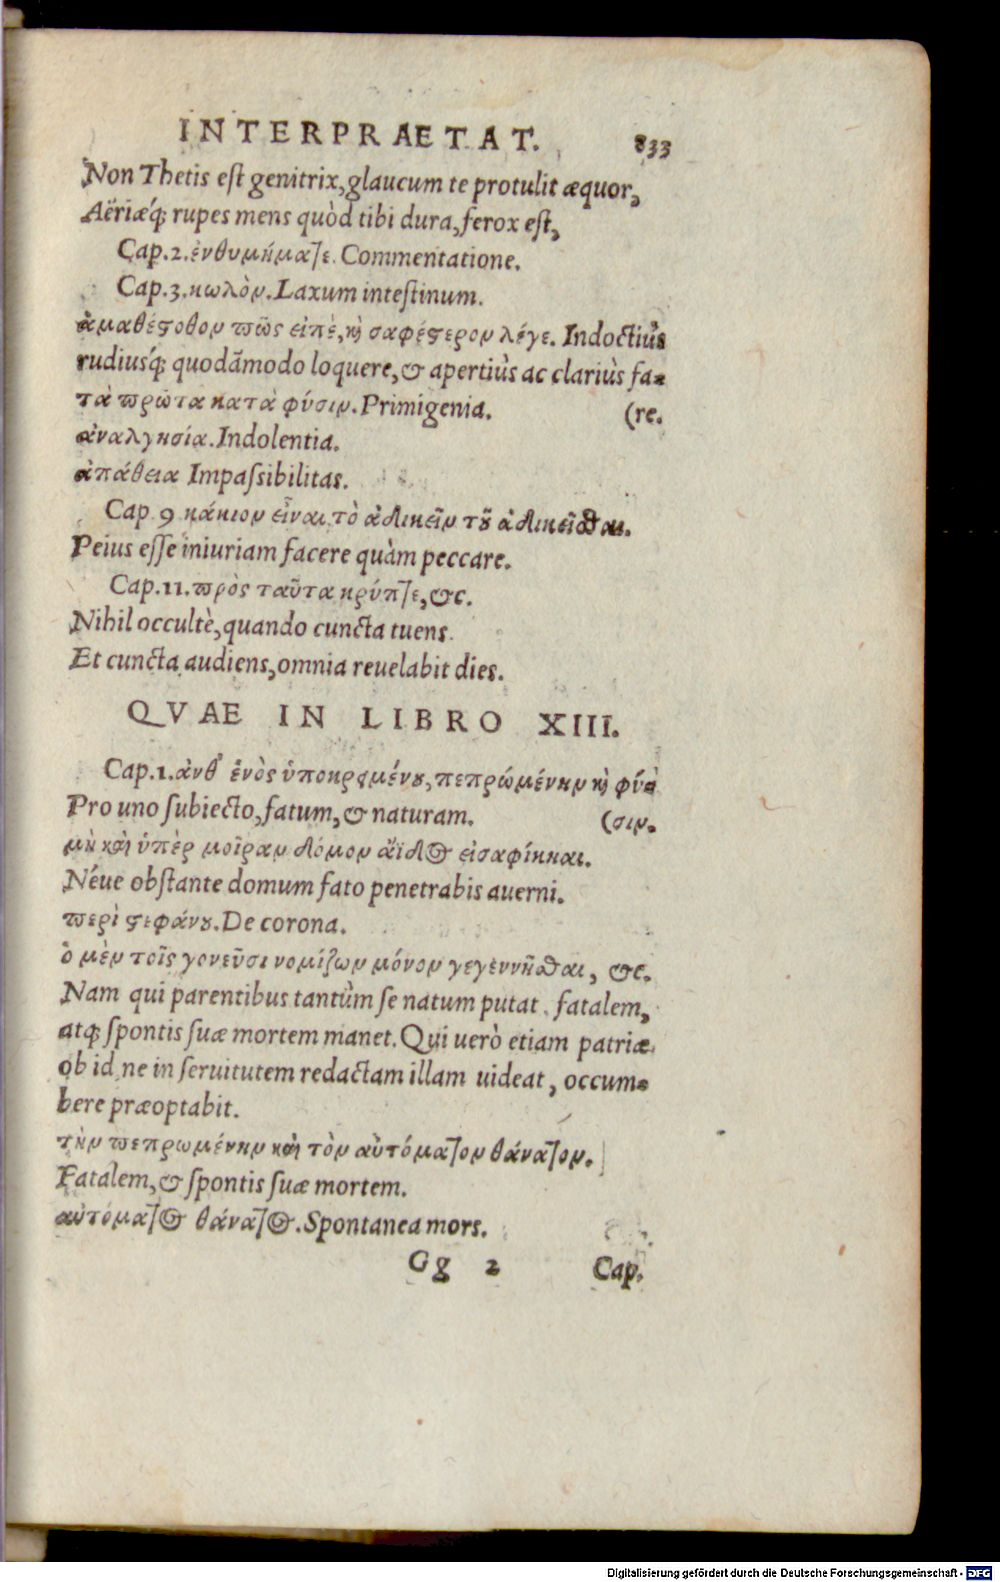 INTERPRAETAT. 833
Non Thetis est genitrix, glaucum te protulit æquor,
Aëriæq́; rupes mens quòd tibi dura, ferox est,
Cap.2. ἐνθυμήματε. Commentatione.
Cap.3. κωλὸν. Laxum intestinum.
ἀμαθέστοθον πῶς εἰπὲ, κὴ σαφέστερον λέγε. Indoctiùs
rudiusq́; quodāmodo loquere, & apertiùs ac clariùs fa-
τὰ πρῶτα κατὰ φύσιν. Primigenia. (re.
ἀναλγησία. Indolentia.
ἀπάθεια Impassibilitas.
Cap 9 κάκιον εἶναι τὸ ἀδικεῖν τȣ͂ ἀδικεῖσθαι.
Peius esse iniuriam facere quàm peccare.
Cap.11. πρὸς ταῦτα κρύπτε, &c.
Nihil occultè, quando cuncta tuens
Et cuncta audiens, omnia reuelabit dies.
QVAE IN LIBRO XIII.
Cap.1. ἀνθ' ἑνὸς ὑποκρ μένȣ, πεπρώμένην κὴ φύ-
Pro uno subiecto, fatum, & naturam. (σιν.
μὴ καὶ ὑπὲρ μοῖραν δόμον ἄϊδος εἰσαφίκηαι.
Néue obstante domum fato penetrabis auerni.
περὶ στεφάνȣ. De corona.
ὁ μὲν τοῖς γονεῦσι νομίζων μόνον γεγεννῆσθαι, &c.
Nam qui parentibus tantùm se natum putat, fatalem,
atq; spontis suæ mortem manet. Qui uerò etiam patriæ,
ob id ne in seruitutem redactam illam uideat, occum-
bere præoptabit.
τὴν πεπρωμένην καὶ τὸν αὐτόματον θάνατον.
Fatalem, & spontis suæ mortem.
αὐτόματος θάνατος. Spontanea mors.
Gg 2 Cap.
Digitalisierung gefördert durch die Deutsche Forschungsgemeinschaft - DFG